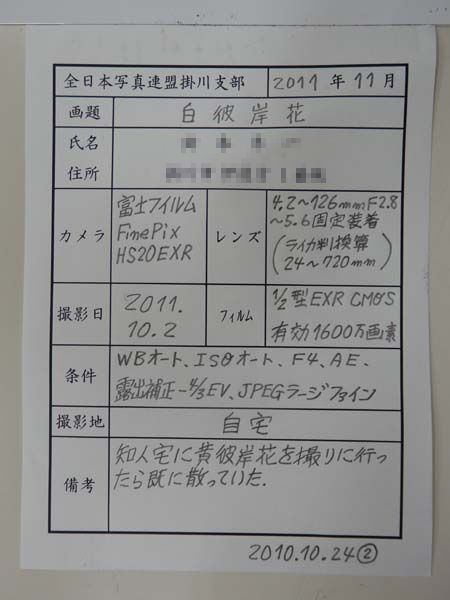 全日本写真連盟掛川支部 2011年11月
画題 白彼岸花
氏名
住所
カメラ 富士フイルム
FinePix
HS20EXR
レンズ 4.2～126mmF2.8
～5.6固定装着
(ライカ判換算
24～720mm)
撮影日 2011.
10.2
フィルム 1/2型EXR CMOS
有効1600万画素
条件 WBオート、ISOオート、F4、AE、
露出補正-4/3EV、JPEGラージファイン
撮影地 自宅
備考 知人宅に黄彼岸花を撮りに行っ
たら既に散っていた.
2010.10.24②